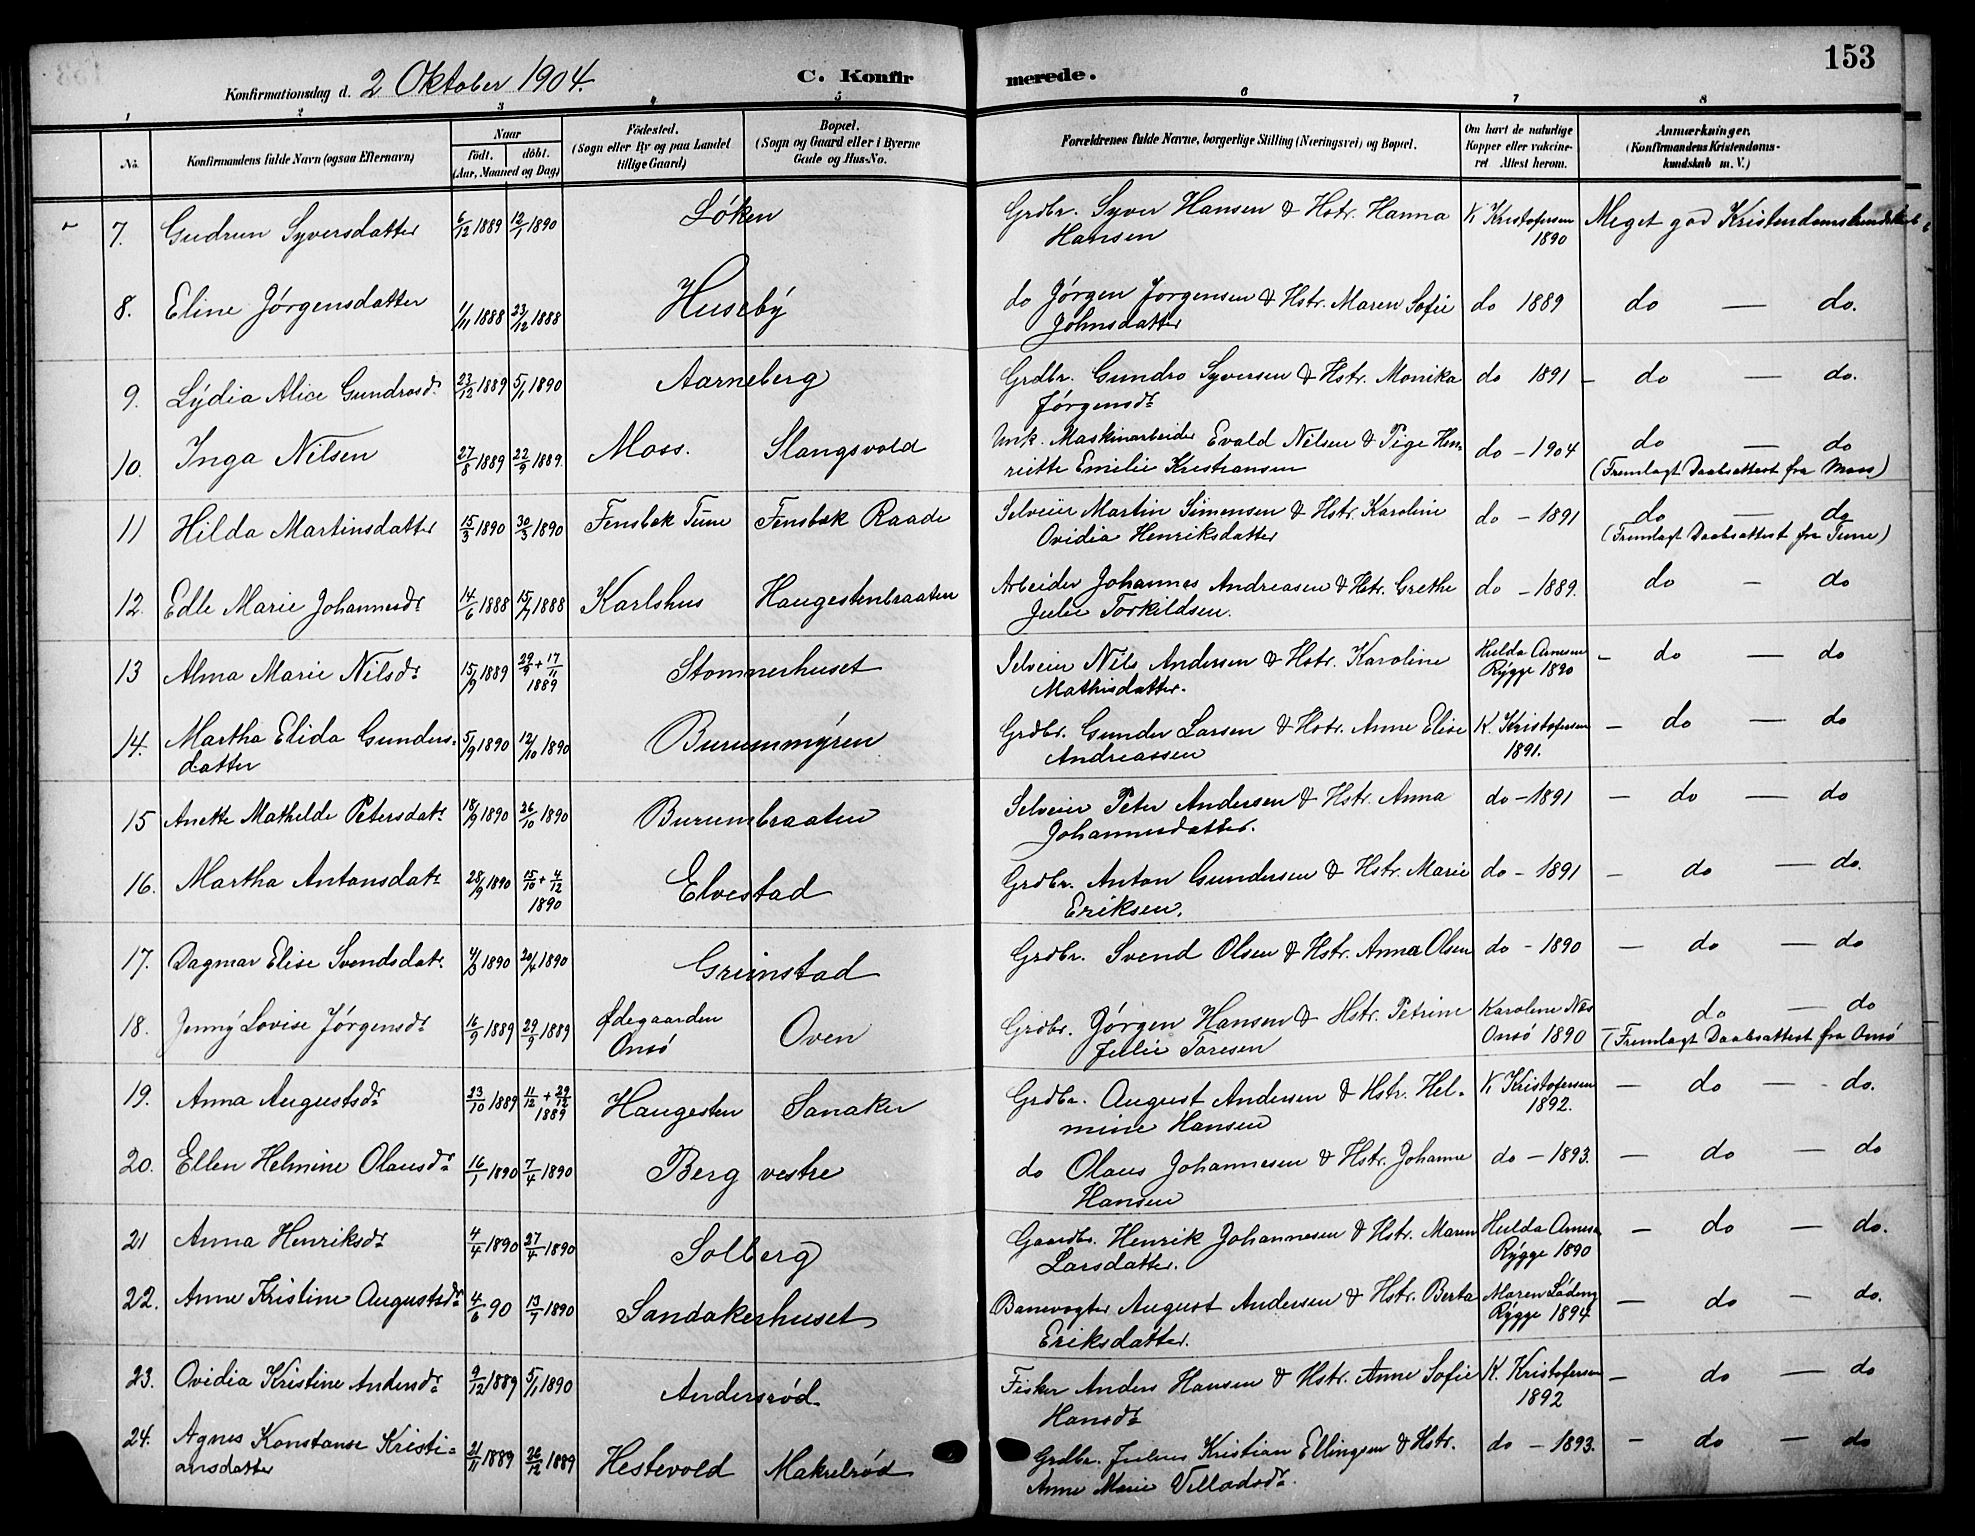 153
Konfirmationsdag d. 2 Oktober 1904.
C. Konfir merede.
1 2 3 4 5 6 7 8
No.
Konfirmandens fulde Navn (ogsaa Efternavn)
Naar
født. døbt.
(Aar, Maaned og Dag)
Fødested.
(Sogn eller By og paa Landet
tillige Gaard)
Bopæl.
(Sogn og Gaard eller i Byerne
Gade og Hus-No.
Forældrenes fulde Navne, borgerlige Stilling (Næringsvei) og Bopæl.
Om havt de naturlige
Kopper eller vakcine-
ret Attest herom.
Anmærkninger.
(Konfirmandens Kristendoms-
kundskab m. V.)
7. Gudrun Syversdatter 6/12 1889 12/1 1890 Løken Grdbr. Syver Hansen & Hstr. Hanna K Kristofersen Meget god Kristendomskundskab
Hansen 1890
8. Eline Jørgensdatter 1/11 1888 23/12 1888 Huseby do Jørgen Jorgensen & Hstr. Maren Sofie do 1889 do — do.
Johnsdatter
9. Lydia Alice Gundrosdr 23/12 1889 5/1 1890 Aarneberg Grdbr. Gundro Syversen & Hstr. Monika do 1891 – do — do.
Jørgensdr
10. Inga Nilsen 27/8 1889 22/9 1889. Moss. Slangsvold Unk. Maskinarbeider Evald Nilsen & Pige Hen- do – 1904 do — do
riette Emilie Kristiansen (Fremlagt Daabsattest fra Moss)
11 Hilda Martinsdatter 15/3 1890 30/3 1890 Fensbek Tune Fensbæk Raade Selveier Martin Simensen & Hstr. Karoline do – 1891 do — do
Ovidia Henriksdatter (Fremlagt Daabsattest fra Tune)
12. Edle Marie Johannesdr 14/6 1888 15/7 1888 Karlshus Haugestenbraaten Arbeider Johannes Andreasen & Hstr. Grethe do – 1889. do – do
Julie Torkildsen.
13 Alma Marie Nilsdr 15/9 1889 29/9 + 17/11 1889 Stomnerhuset Selveier Nils Andersen & Hstr. Karoline Hulda Arnesen – do — do
Mathisdatter. Rygge 1890
14. Martha Elida Gunders- 5/9 1890 12/10 1890 Burummyren Grdbr. Gunder Larsen & Hstr. Anne Elise K. Kristofersen – do — do
datter Andreassen 1891.
15 Anette Mathilde Petersdatr 18/9 1890 26/10 1890 Burumbraaten Selveier Peter Andersen & Hstr. Anna do – 1891 – do — do
Johannesdatter.
16. Martha Antonsdatr 28/9 1890 15/10 + 4/12 1890 Elvestad Grdbr. Anton Gundersen & Hstr. Marie do – 1891 – do — do.
Eriksen.
17. Dagmar Elise Svendsdatr 4/3 1890 20/4 1890 Grimstad Grdbr. Svend Olsen & Hstr. Anna Olsen do – 1890 – do — do
18. Jenny Lovise Jørgensdr 16/9 1889 29/9 1889 Ødegaarden Oven Grdbr. Jørgen Hansen & Hstr. Petrine Karoline Næs do — do
Onsø Julie Toresen Onsø 1890 (Fremlagt Daabsattest fra Onsø
19. Anna Augustsdr 23/10 1889 11/12 + 29/12 1889 Haugesten Sanaker Grdbr. August Andersen & Hstr. Hel- K Kristofersen – do — do.
mine Hansen 1892.
20. Ellen Helmine Olausdr 16/1 1890 7/4 1890 Berg vestre do Olaus Johannesen & Hstr. Johanne do – 1893. – do — do
Hansen
21 Anna Henriksdr 4/4 1890 27/4 1890 Solberg Gaardbr. Henrik Johannesen & Hstr. Maren Hulda Arnesen – do — do.
Larsdatter. Rygge 1890
22. Anne Kristine Augustsdr 4/6 90 13/7 1890 Sandakerhuset Banevogter August Andersen & Hstr. Berta Maren – do – do.
Eriksdatter. Rygge 1894
23. Ovidia Kristine Andersdr 9/12 1889 5/1 1890 Andersrød. Fisker Anders Hansen & Hstr. Anne Sofie K. Kristofersen – do — do
Hansdr 1892
24. Agnes Konstanse Kristi- 21/11 1889 26/12 1889 Hestevold Makrelrød Grdbr. Julius Kristian Ellingsen & Hstr. do – 1893. – do — do
ansdatter Anne Marie Villadsdr.